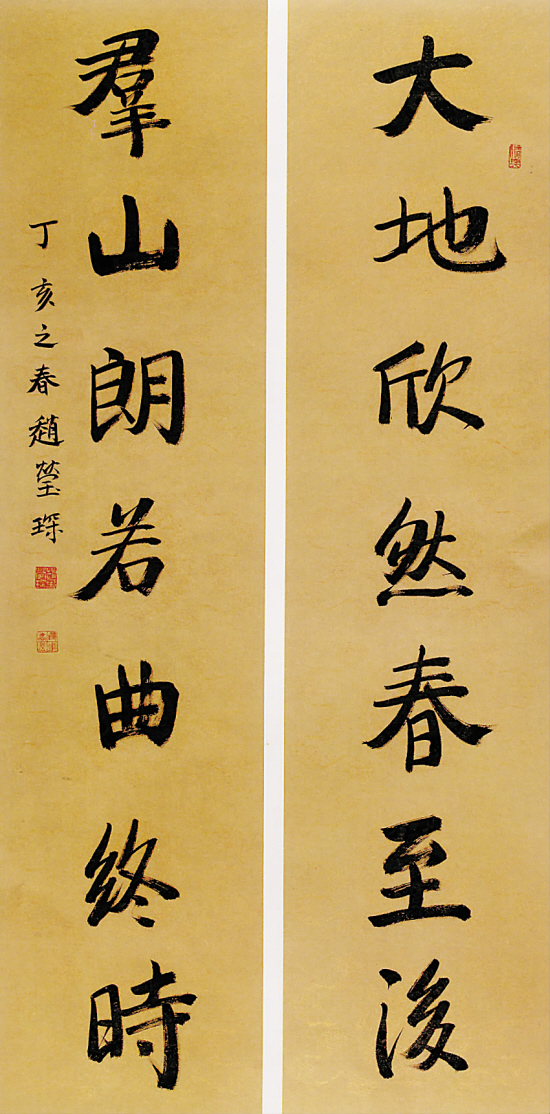 大地欣然春至後
羣山朗若曲終時
丁亥之春趙瑩琛